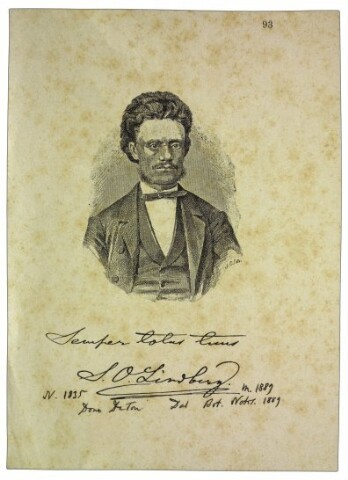 93
Semper totus tuus
S. O. Lindberg.
N. 1835
m. 1889
Dono De Toni Dal Bot. Notis. 1889